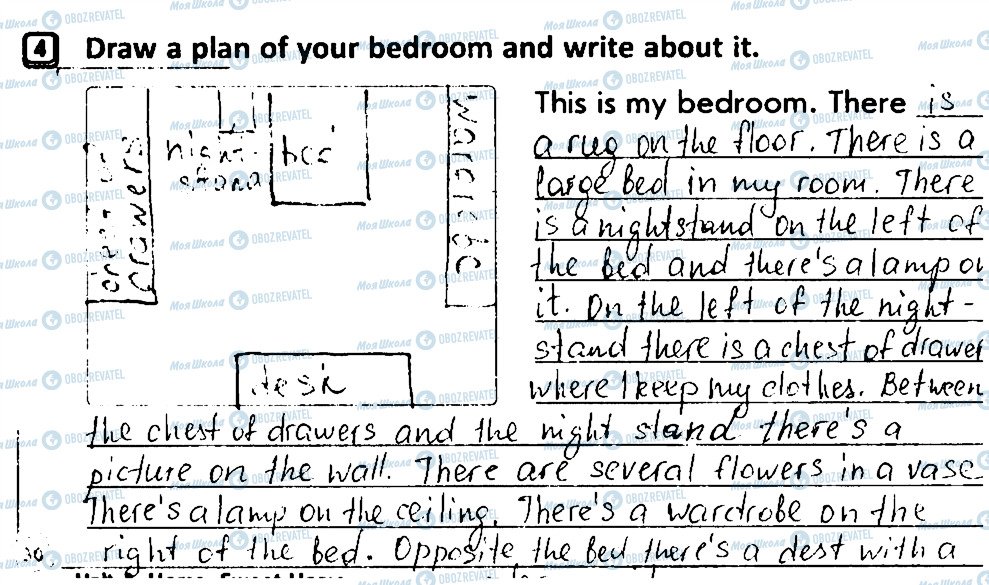 4 Draw a plan of your bedroom and write about it.
chest of drawers
night-
stand
bed
wardrobe
desk
This is my bedroom. There is
a rug on the floor. There is a
large bed in my room. There
is a nightstand on the left of
the bed and there's a lamp on
it. On the left of the night-
stand there is a chest of drawer
where I keep my clothes. Between
the chest of drawers and the night stand there's a
picture on the wall. There are several flowers in a vase
There's a lamp on the ceiling. There's a wardrobe on the
right of the bed. Opposite the bed there's a dest with a
30
Моя Школа OBOZREVATEL